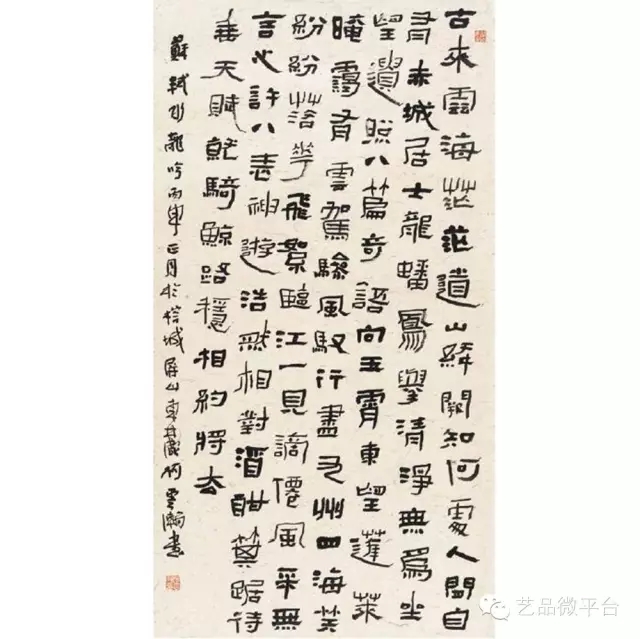 古來雲海茫茫道山絳闕知何處人間自
有赤城居士龍蟠鳳舉清淨無為坐
望遺照八篇奇語向玉霄東望蓬萊
晻靄有雲駕驂風馭行盡九州四海笑
紛紛落花飛絮臨江一見謫僊風采無
言心許八表神遊浩然相對酒酣箕踞待
垂天賦就騎鯨路穩相約將去
蘇軾水龍吟丙申正月於榕城屏山東麓何雲瀚書
艺品微平台